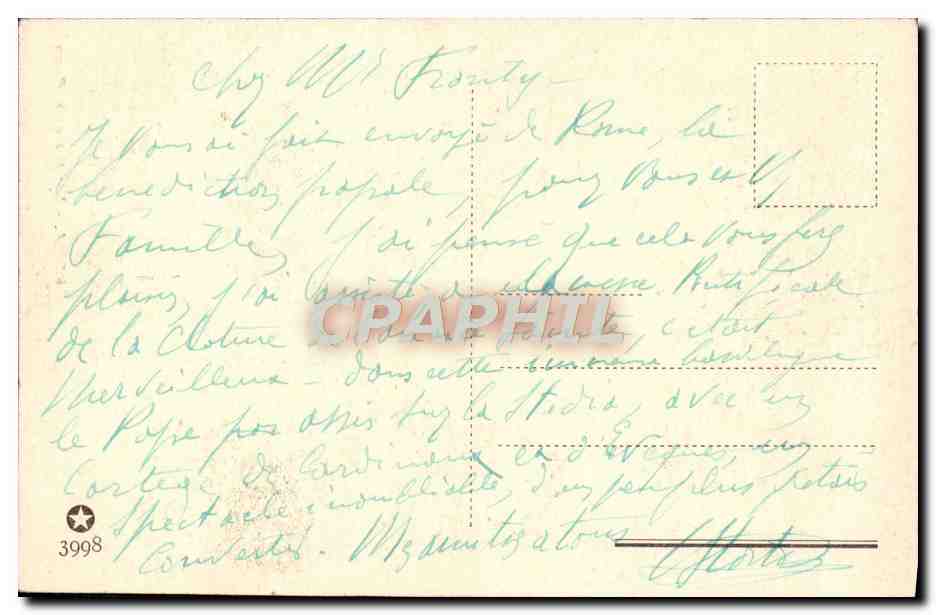 chez Mr Fronty
Je vous ai fait envoyé de Rome, la
benediction papale, pour vous et
Famille, j'ai pensé que cela vous fera
plaisir, j'ai à la messe Pontificale
de la Cloture c'etait
Merveilleux - dans cette immense basilique
le Pape assis sur la Stedia, avec un
Cortege de Cardinaux et d'Evèques, un
Spectacle inoubliable, d'un peu plus j'etais
Converti. Mes amities a tous
CPARPHIL
3998